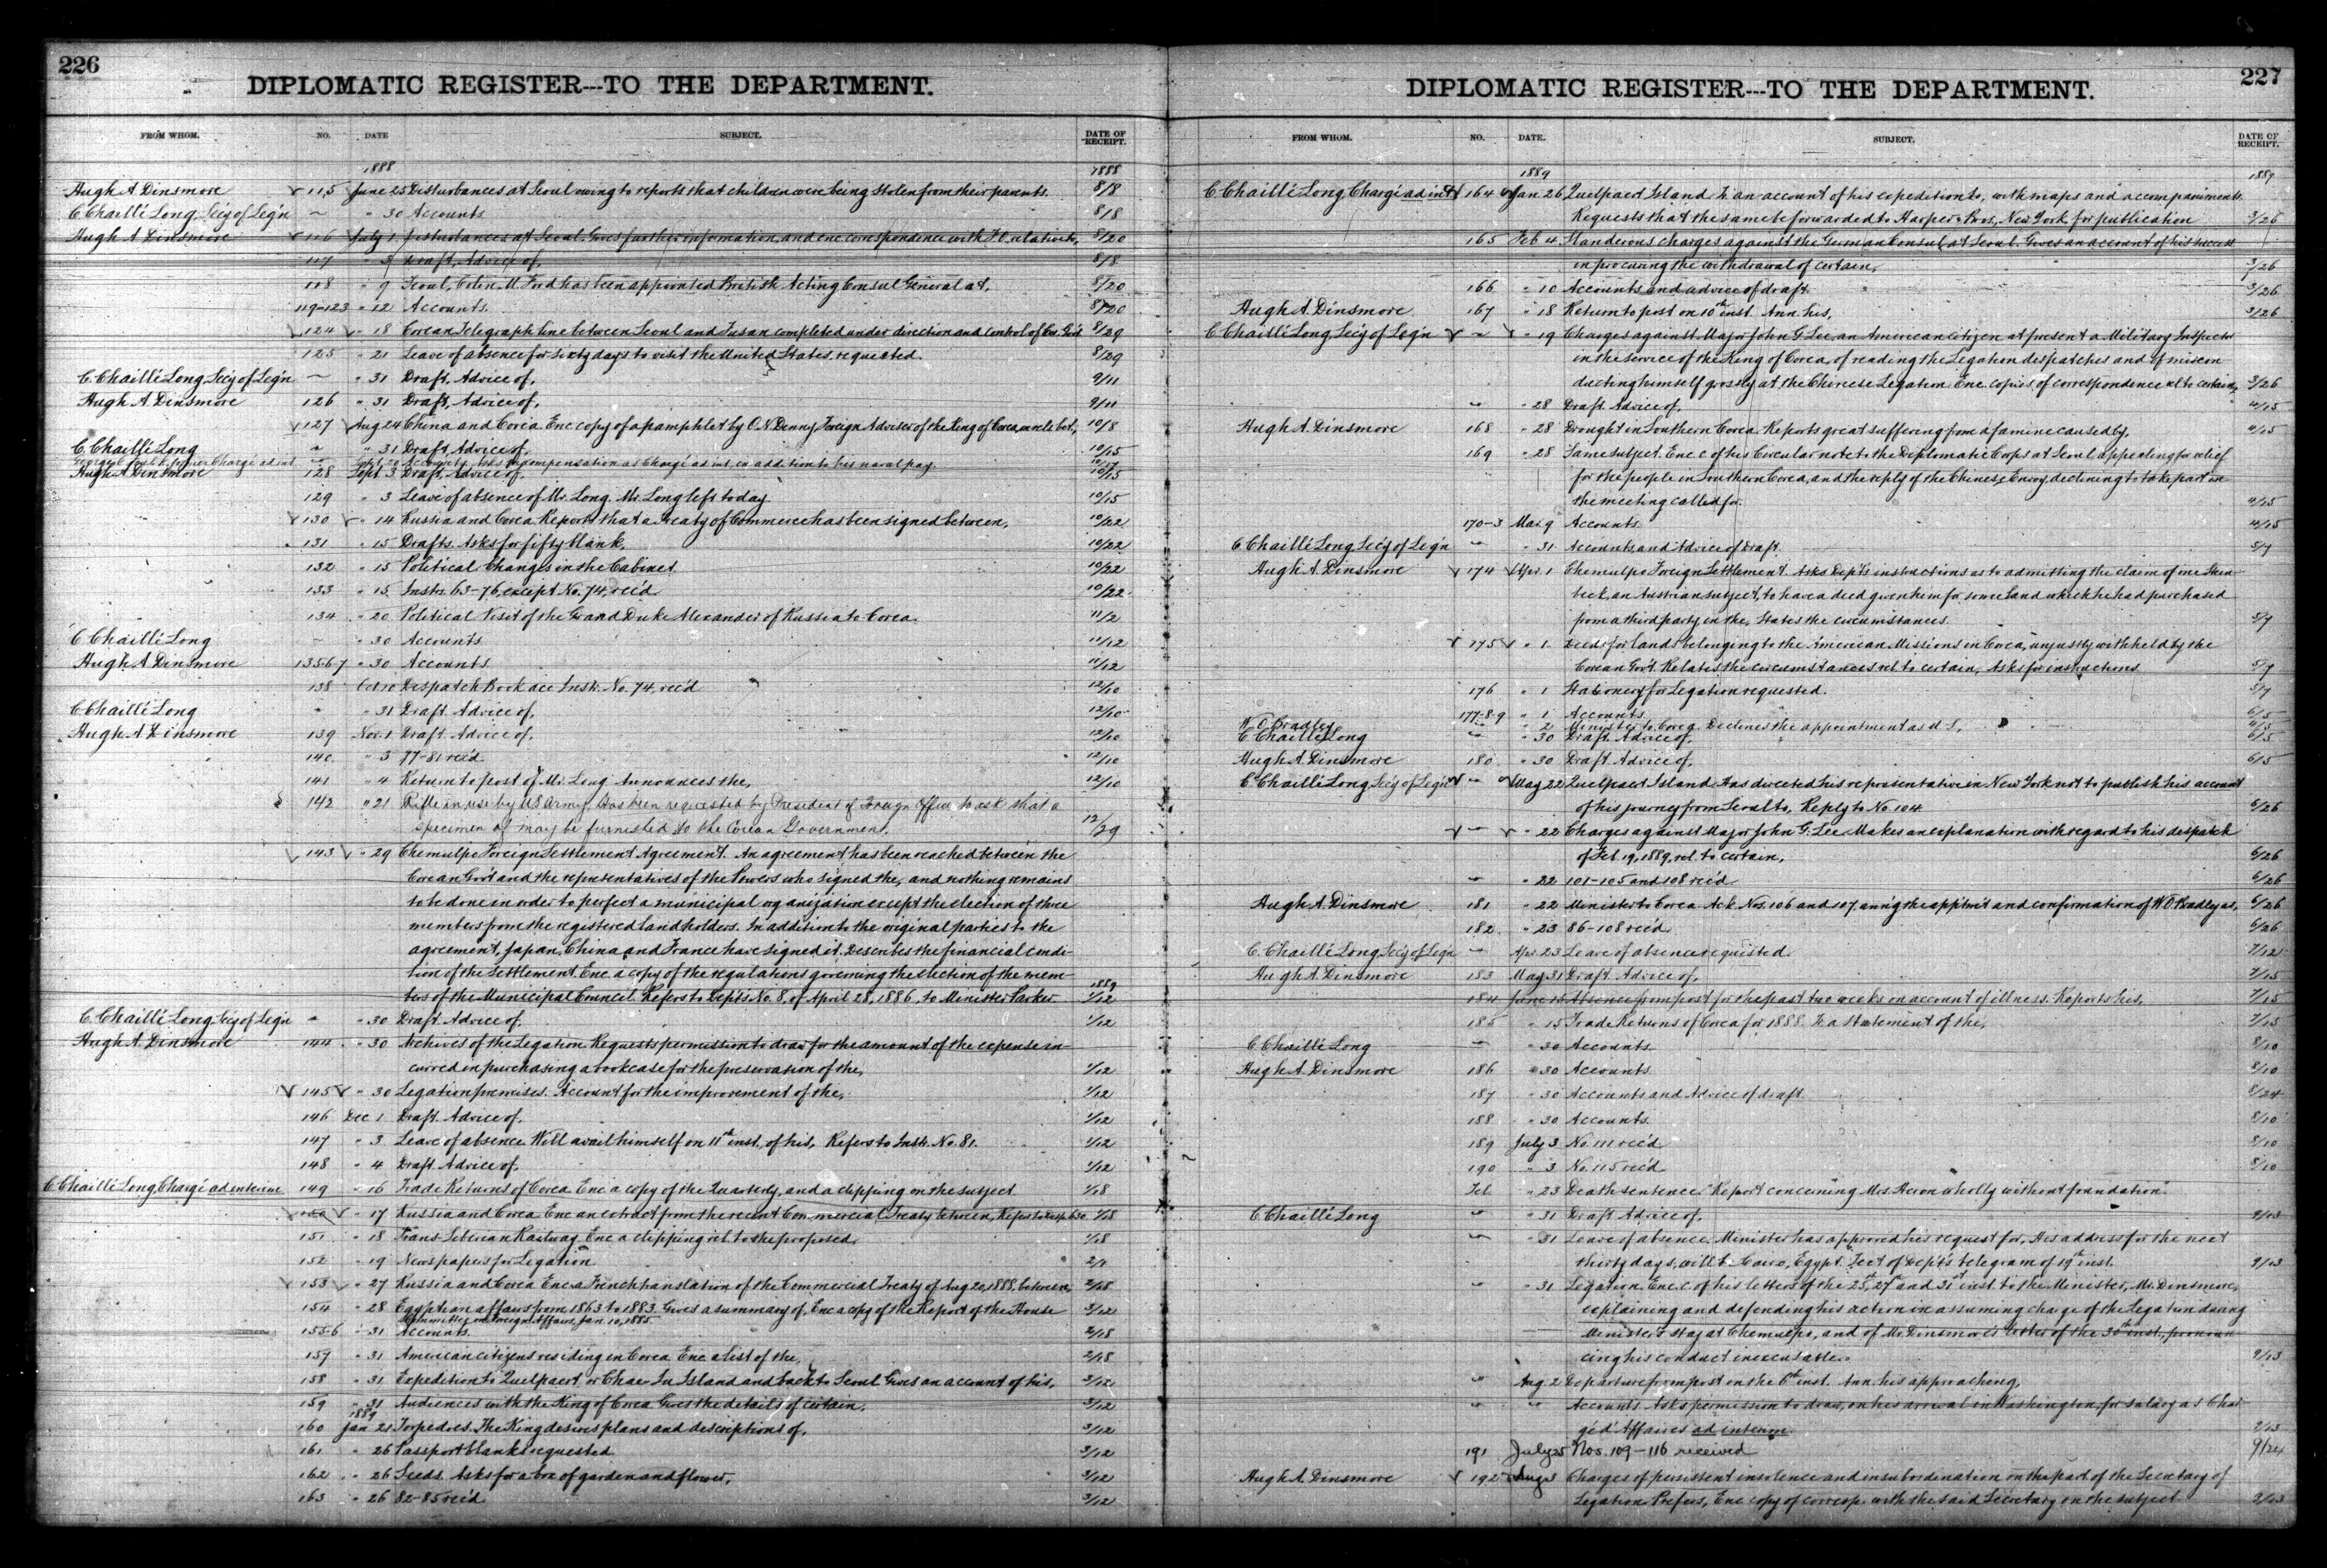 226
DIPLOMATIC REGISTER---TO THE DEPARTMENT.
FROM WHOM. NO. DATE SUBJECT. DATE OF RECEIPT.
1888 1888
Hugh A Dinsmore 115 June 25 Disturbances at Seoul owing to reports that children were being stolen from their parents. 8/8
C Chaillé Long, Sec'y of Leg'n " 30 Accounts 8/8
Hugh A Dinsmore 116 July 1 Disturbances at Seoul. Gives further information, and enc correspondence with F.O. relative to, 8/20
117 " 3 Draft, Advice of, 8/8
118 " 9 Seoul, Colin M. Ford has been appointed British Acting Consul General at, 8/20
119-123 " 12 Accounts. 8/20
124 " 18 Corean Telegraph line between Seoul and Fusan completed under direction and control of Cor. Gov't 8/29
125 " 21 Leave of absence for sixty days to visit the United States, requested. 8/29
C. Chaillé Long, Sec'y of Leg'n " 31 Draft, Advice of, 9/11
Hugh A. Dinsmore 126 " 31 Draft, Advice of, 9/11
127 Aug 24 China and Corea Enc copy of a pamphlet by O. N. Denny Foreign Adviser of the King of Corea, on rel. bet., 10/8
C. Chaillé Long " " 31 Draft. Advice of, 10/15
George C. Foulk, former Chargé ad int Accounts. Asks compensation as Chargé ad int, in addition to his naval pay
Hugh A Dinsmore 128 Sept. 3 Draft. Advice of, 10/15
129 " 3 Leave of absence of Mr. Long. Mr. Long left today 10/15
130 " 14 Russia and Corea Reports that a Treaty of Commerce has been signed between, 10/22
131 " 15 Drafts. Asks for fifty blank, 10/22
132 " 15 Political Changes in the Cabinet 10/22
133 " 15 Instrs. 63-76, except No. 74, rec'd 10/22
134 " 20 Political Visit of the Grand Duke Alexander of Russia to Corea. 11/2
C Chaillé Long " 30 Accounts 11/12
Hugh A Dinsmore 135-6-7 " 30 Accounts 11/12
138 Oct 10 Despatch Book acc Instr. No. 74, rec'd 12/10
C Chaillé Long " " 31 Draft Advice of, 12/10
Hugh A Dinsmore 139 Nov. 1 Draft Advice of, 12/10
140 " 3 77-81 rec'd 12/10
141 " 4 Return to post of Mr. Long Announces the, 12/10
142 " 21 Rifle in use by US Army, Has been requested by President of Foreign Office to ask that a
specimen of may be furnished to the Corean Government. 12/29
143 " 29 Chemulpo Foreign Settlement Agreement. An agreement has been reached between the
Corean Gov't and the representatives of the Powers who signed the, and nothing remains
to be done in order to perfect a municipal organization except the election of three
members from the registered landholders. In addition to the original parties to the
agreement, Japan, China and France have signed it, Describes the financial condi-
tion of the Settlement. Enc. a copy of the regulations governing the election of the mem-
bers of the Municipal Council. Refers to Dep't's No. 8, of April 28, 1886, to Minister Parker 1889 1/12
C Chaillé Long, Sec'y of Leg'n " " 30 Draft Advice of, 1/12
Hugh A. Dinsmore 144 " 30 Archives of the Legation Requests permission to draw for the amount of the expense in-
curred in purchasing a bookcase for the preservation of the, 1/12
145 " 30 Legation premises. Account for the improvement of the, 1/12
146 Dec 1 Draft. Advice of, 1/12
147 " 3 Leave of absence Will avail himself on 11th inst. of his, Refers to Instr. No. 81. 1/12
148 " 4 Draft. Advice of, 1/12
C Chaillé Long, Chargé ad interim 149 " 16 Trade Returns of Corea Enc a copy of the Quarterly, and a clipping on the subject 1/18
150 " 17 Russia and Corea Enc an extract from the recent Commercial Treaty between, Refers to Desp 130. 1/18
151 " 18 Trans-Siberian Railway Enc a clipping rel. to the proposed, 1/18
152 " 19 Newspapers for Legation 2/1
153 " 27 Russia and Corea Enc a French translation of the Commercial Treaty of Aug 20, 1888, between, 2/18
154 " 28 Egyptian affairs from 1863 to 1883. Gives a summary of, Enc a copy of the Report of the House
Committee on Foreign Affairs, Jan. 10, 1885. 3/12
155-6 " 31 Accounts. 2/18
157 " 31 American citizens residing in Corea Enc a list of the, 2/18
158 " 31 Expedition to Quelpaert or Chae Ju Island and back to Seoul Gives an account of his, 3/12
159 " 31 Audiences with the King of Corea Gives the details of certain, 3/12
1889
160 Jan 21 Torpedoes. The King desires plans and descriptions of, 3/12
161 " 26 Passport blanks requested 3/12
162 " 26 Seeds. Asks for a box of garden and flower, 3/12
163 " 26 82-85 rec'd 3/12
227
DIPLOMATIC REGISTER---TO THE DEPARTMENT.
FROM WHOM. NO. DATE. SUBJECT. DATE OF RECEIPT.
1889 1889
C Chaillé Long Chargé ad int 164 Jan 26 Quelpaert Island Tr. an account of his expedition to, with maps and accompaniments.
Requests that the same be forwarded to Harper & Bros, New York for publication 3/26
165 Feb 4 Slanderous charges against the German Consul at Seoul Gives an account of his success
in procuring the withdrawal of certain, 3/26
166 " 10 Accounts and advice of draft. 3/26
Hugh A. Dinsmore 167 " 18 Return to post on 10th inst. Ann. his, 3/26
C Chaillé Long Sec'y of Leg'n " " 19 Charges against Major John G. Lee, an American citizen at present a Military Inspector
in the service of the King of Corea, of reading the Legation despatches and of miscon
ducting himself grossly at the Chinese Legation Enc. copies of correspondence rel to certain, 3/26
" " 28 Draft. Advice of, 4/15
Hugh A. Dinsmore 168 " 28 Drought in Southern Corea Reports great suffering from a famine caused by, 4/15
169 " 28 Same subject. Enc c of his Circular note to the Diplomatic Corps at Seoul appealing for relief
for the people in Southern Corea, and the reply of the Chinese Envoy declining to take part in
the meeting called for. 4/15
170-3 Mar. 9 Accounts. 4/15
C Chaillé Long Sec'y of Leg'n " " 31 Accounts, and Advice of Draft. 5/7
Hugh A. Dinsmore 174 Apr. 1 Chemulpo Foreign Settlement. Asks Dep't's instructions as to admitting the claim of one Stein
beck, an Austrian subject, to have a deed given him for some land which he had purchased
from a third party in the, States the circumstances. 5/7
175 " 1 Deeds for lands belonging to the American Missions in Corea, unjustly withheld by the
Corean Gov't. Relates the circumstances rel. to certain, Asks for instructions 5/7
176 " 1 Stationery for Legation requested. 5/7
177-8-9 " 1 Accounts 6/5
W. O. Bradley " " 2 Minister to Corea Declines the appointment as U.S,
C Chaillé Long " " 30 Draft. Advice of, 6/5
Hugh A. Dinsmore 180 " 30 Draft. Advice of, 6/5
C Chaillé Long Sec'y of Leg'n " May 22 Quelpaert Island Has directed his representative in New York not to publish his account
of his journey from Seoul to, Reply to No 104 6/26
" " 22 Charges against Major John G. Lee Makes an explanation with regard to his despatch
of Feb. 19, 1889, rel. to certain, 6/26
" " 22 101-105 and 108 rec'd 6/26
Hugh A. Dinsmore 181 " 22 Minister to Corea Ack Nos. 106 and 107 ann'g the app'tm't and confirmation of W O Bradley as, 6/26
182 " 23 86-108 rec'd 6/26
C. Chaillé Long Sec'y of Leg'n " Apr. 23 Leave of absence requested. 7/12
Hugh A. Dinsmore 183 May 31 Draft. Advice of, 7/15
184 Absence from post for the past two weeks on account of illness. Reports his, 7/15
185 " 15 Trade Returns of Corea for 1888. Tr a Statement of the, 7/15
C Chaillé Long " " 30 Accounts 8/10
Hugh A. Dinsmore 186 " 30 Accounts 8/10
187 " 30 Accounts and Advice of draft. 8/24
188 " 30 Accounts. 8/10
189 July 3 No. 111 rec'd 8/10
190 " 3 No. 115 rec'd 8/10
Tel. " 23 Death sentence. "Report concerning Mrs. Heron wholly without foundation"
C Chaillé Long " " 31 Draft Advice of, 9/13
" " 31 Leave of absence Minister has approved his request for, His address for the next
thirty days, will b. Cairo, Egypt. Dep't's telegram of 19th inst. 9/13
" " 31 Legation Enc. c of his letters of the 25th, 27th and 31st inst. to the Minister, Mr. Dinsmore,
explaining and defending his action in assuming charge of the Legation during
Minister's stay at Chemulpo, and of Mr. Dinsmore's letter of the 30th inst., pronoun
cing his conduct inexcusable. 9/13
" Aug 2 Departure from post on the 6th inst. Ann. his approaching, 9/13
" " Accounts Asks permission to draw, on his arrival in Washington, for salary as Char
gé d'Affaires ad interim 9/13
191 July 25 Nos. 109-116 received 9/24
Hugh A Dinsmore 192 Aug 3 Charges of persistent insolence and insubordination on the part of the Secretary of
Legation Prefers, Enc copy of corresp. with the said Secretary on the subject 9/13